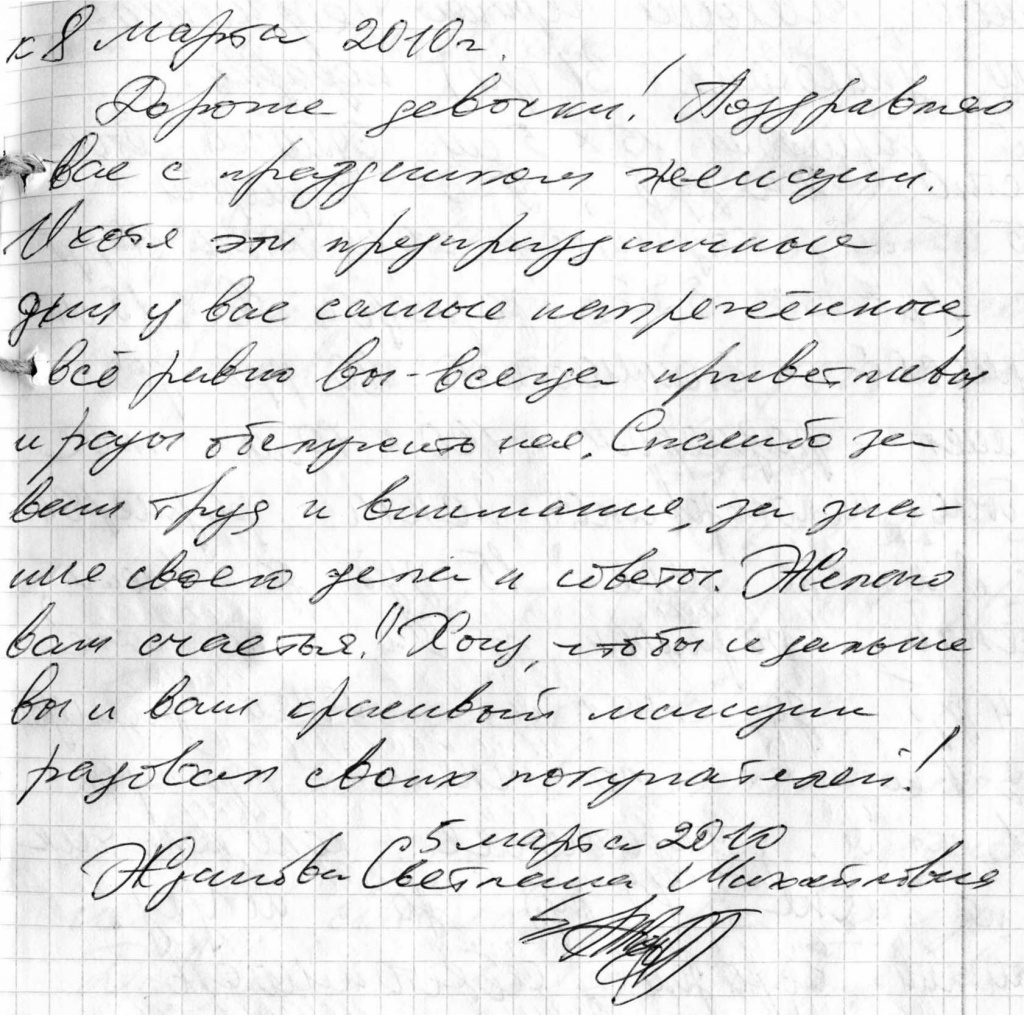 к 8 марта 2010г.
Дорогие девочки! Поздравляю
вас с праздником женщин.
И хотя эти предпраздничные
дни у вас самые напряжённые,
всё равно вы - всегда приветливы
и рады обслужить нас. Спасибо за
ваш труд и внимание, за зна-
ние своего дела и советы. Желаю
вам счастья!! Хочу, чтобы и дальше
вы и ваш красивый магазин
радовал своих покупателей!
5 марта 2010
Жданова Светлана Михайловна